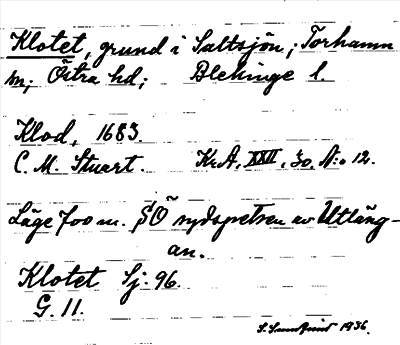 Klotet, grund i Saltsjön; Torhamn
sn; Östra hd; Blekinge l.
Klod, 1683
C. M. Stuart. KrA, XXII, 30, N:o 12.
Läge 700 m. SO sydspetsen av Utläng-
an.
Klotet Sj. 96.
G. 11.
1936.